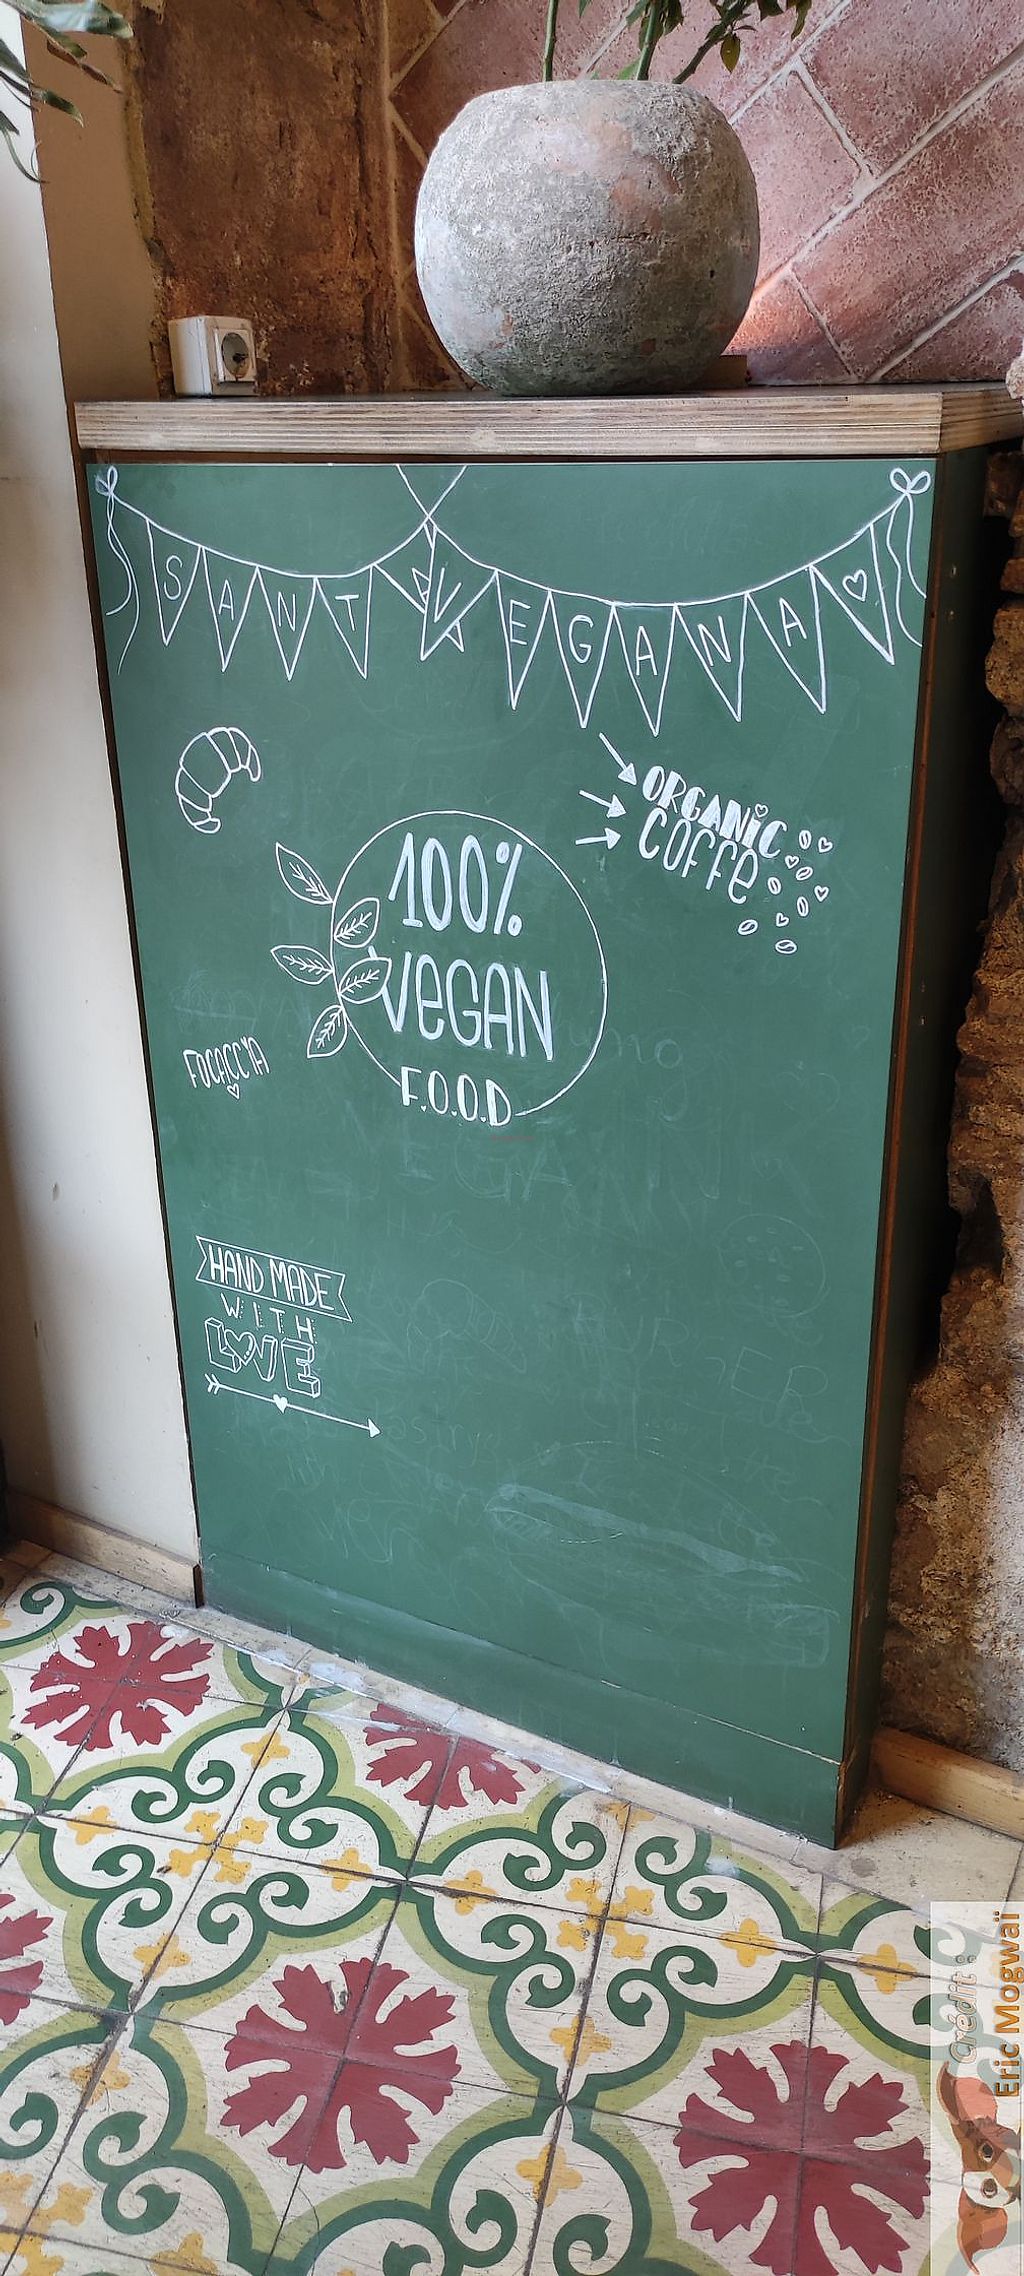 SANTA VEGANA
ORGANIC
COFFE
100%
VEGAN
F.O.O.D
FOCACCYA
HAND MADE
WITH
LOVE
Crédit :
Eric Mogwaï